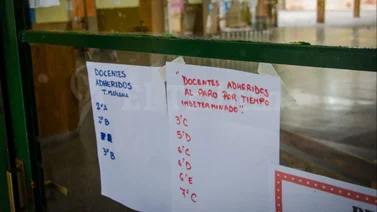 DOCENTES
ADHERIDOS
T. MAÑANA
2°A
3°B
"DOCENTES ADHERIDOS
AL PARO POR TIEMPO
INDETERMINADO".
3°C
5°D
6°C
6°D
6°E
7°C